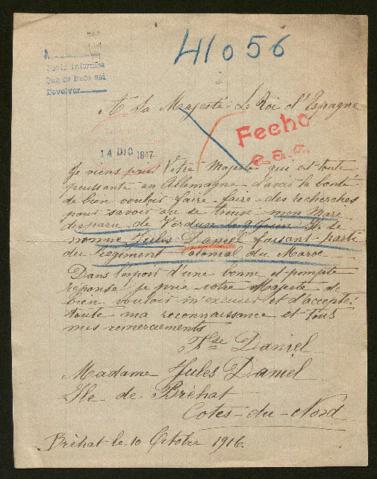 41056
Que se Ruega sea
Devolver
A Sa Majesté Le Roi d'Espagne
Fecho
e.a.c.
14 DIC 1917
Je viens près Votre Majesté qui est toute
puissante en Allemagne d'avoir la bonté
de bien vouloir faire faire des recherches
pour savoir où se trouve mon Mari
disparu de Verdun Il se
nomme Jules Daniel faisant parti
du Regiment Colonial du Maroc
Dans l'espoir d'une bonne et prompte
réponse je prie votre Majesté de
bien vouloir m'excuser et d'accepter
toute ma reconnaissance et tous
mes remerciements
Daniel
Madame Jules Daniel
Ile de Bréhat
Cotes-du-Nord
Bréhat le 10 Octobre 1916